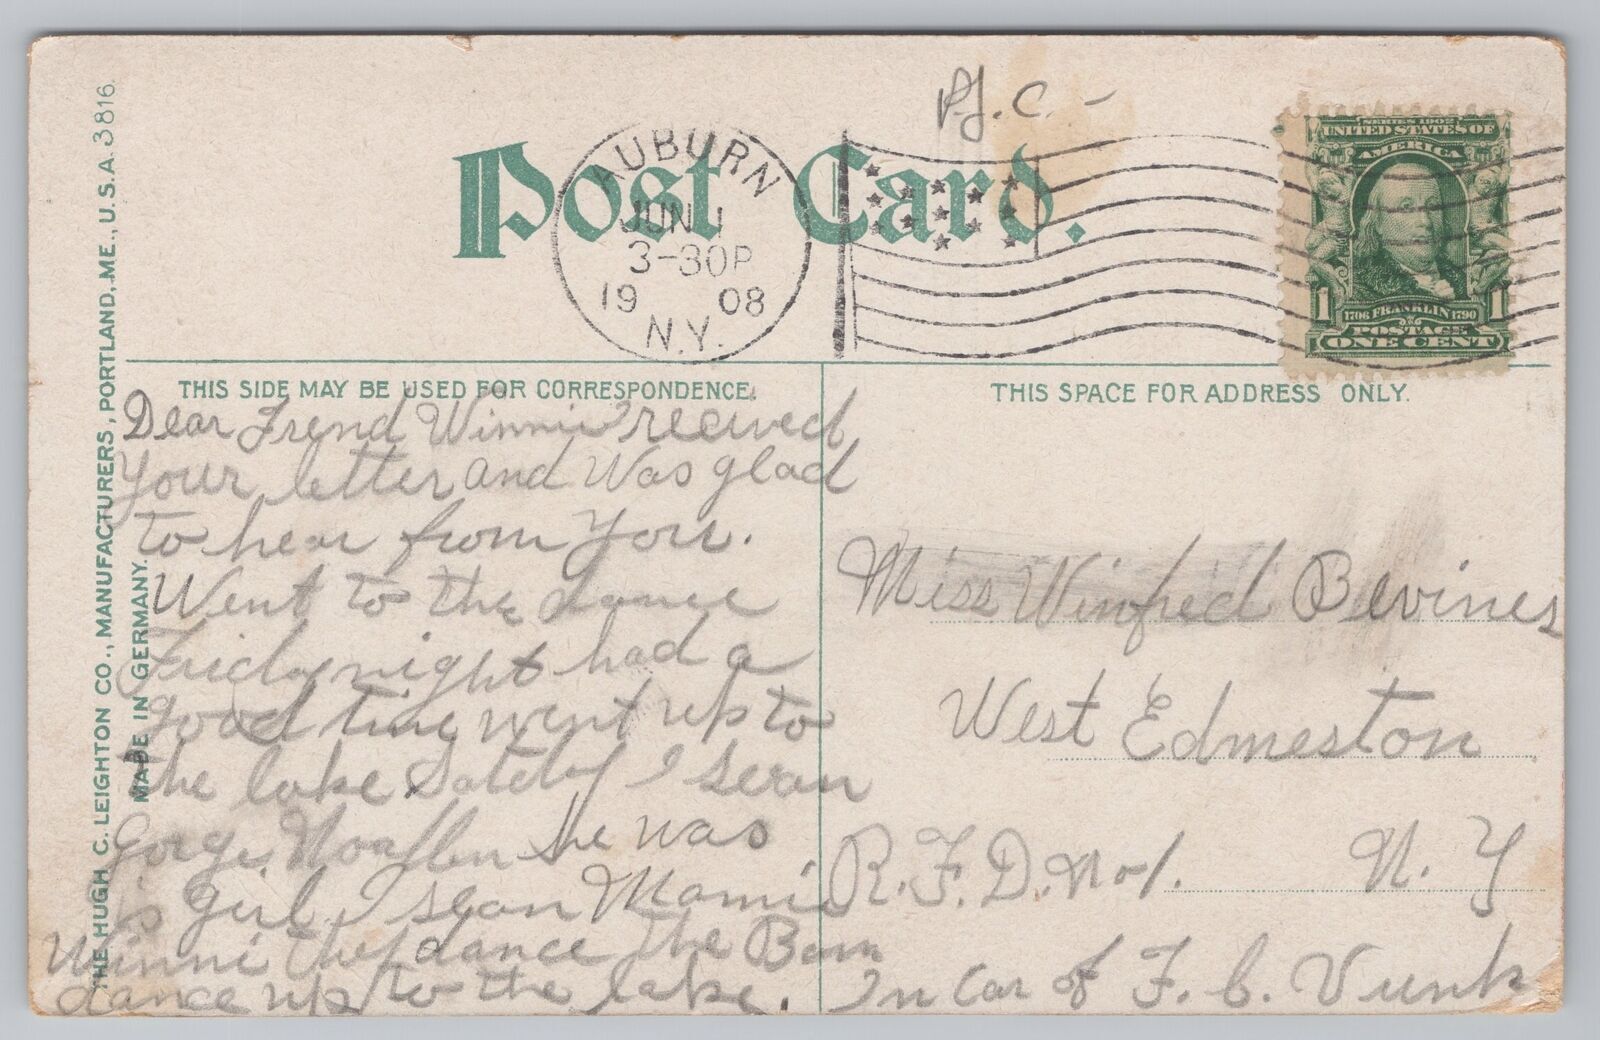 P.J.C. -
Post Card.
AUBURN
JUN 1
3-30P
19 08
N.Y.
SERIES 1902
UNITED STATES OF
AMERICA
1 1706 FRANKLIN 1790 1
POSTAGE
ONE CENT
THE HUGH C. LEIGHTON CO., MANUFACTURERS, PORTLAND, ME., U.S.A. 3816.
MADE IN GERMANY.
THIS SIDE MAY BE USED FOR CORRESPONDENCE.
Dear Frend Winnie recived
Your letter and Was glad
to hear from You.
Went to the dance
Friday night had a
good time went up to
the lake Satdy I sean
Gorge he was
is girl. I sean Mami
Winni They dance The Barn
dance up to the lake.
THIS SPACE FOR ADDRESS ONLY.
Miss Winfred Bevines
West Edmeston
R.F.D. No 1. N.Y
In Car of F. C. Vunk